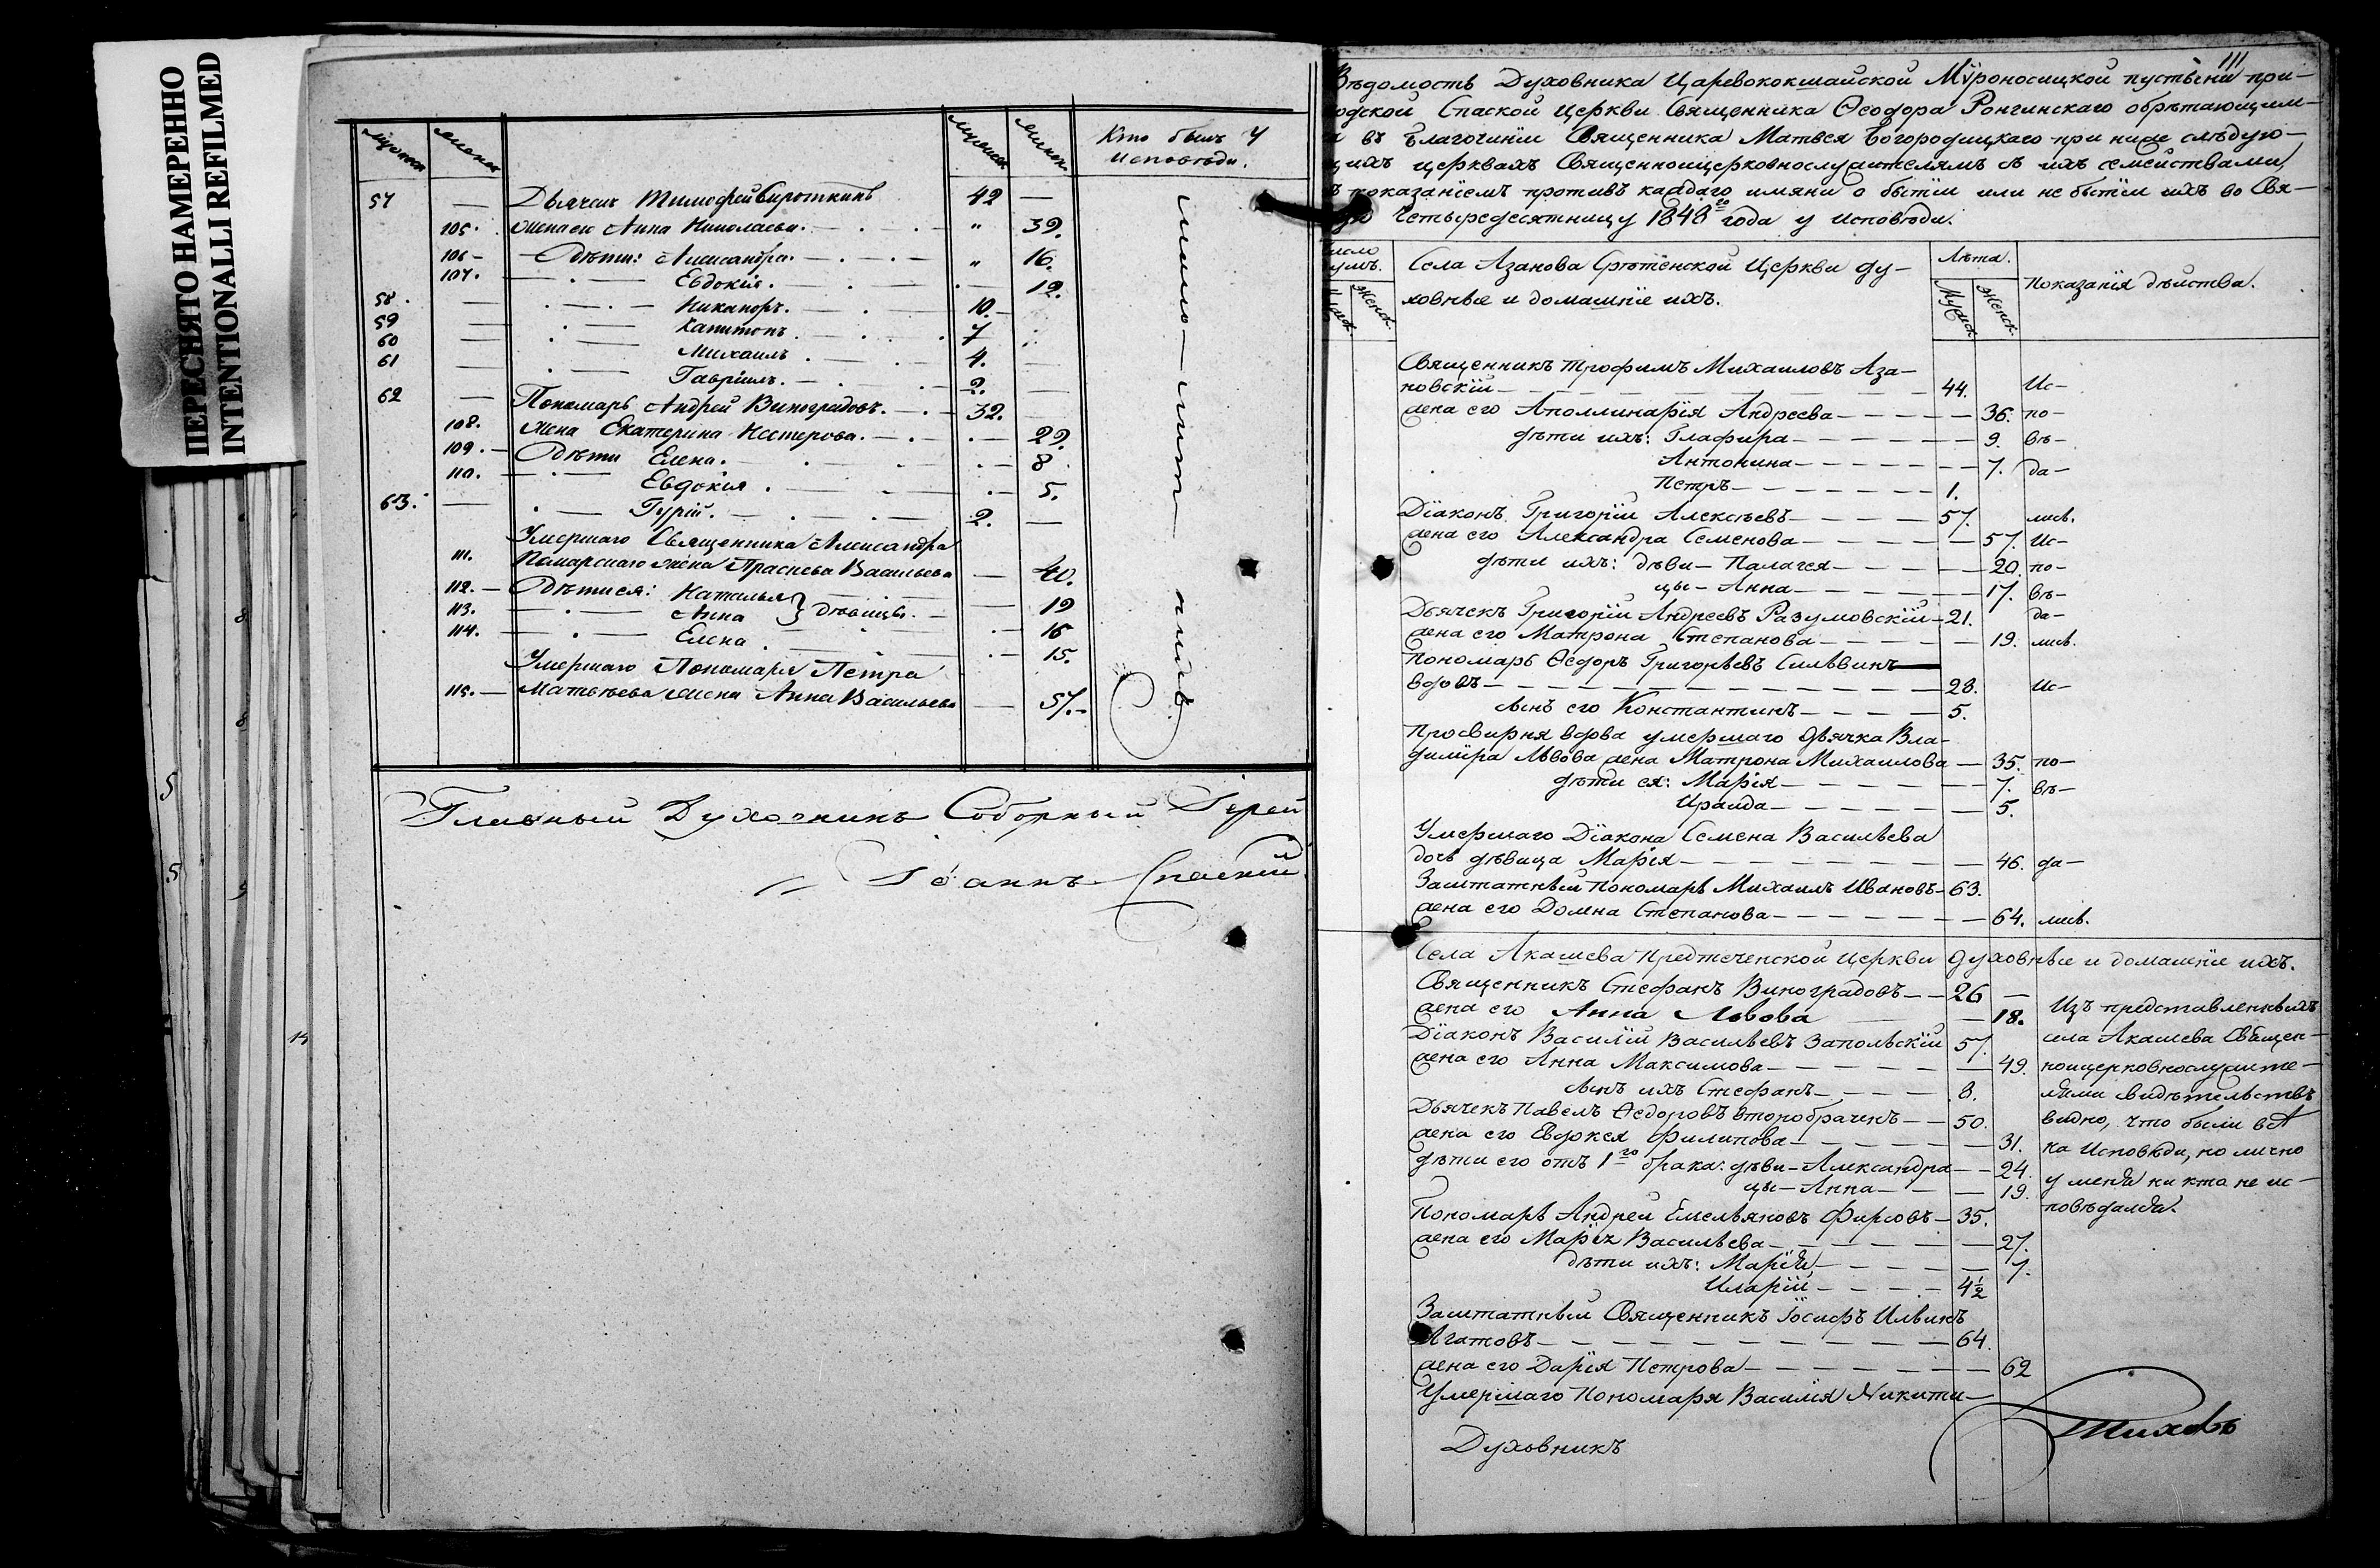 ПЕРЕСНЯТО НАМЕРЕННО
INTENTIONALLI REFILMED
мужска женска мужска женска Кто былъ у
исповѣди.
57 — Дьячекъ Тимофей Сироткинъ 42 —
105. жена ею Анна Николаева. " 39.
106 — Дѣти: Александра. " 16.
107. Евдокія. — 12.
58. — Никаноръ. 10. —
59 — Капитонъ 7
60 — Михаилъ 4.
61 — Гавріилъ. 2. —
62 — Пономарь Андрей Виноградовъ. 32. —
108. жена Екатерина Нестерова. — 29.
109. — Дѣти Елена. — 8
110. Евдокія. — 5.
63. — Гурій. 2. —
Умершаго Священника Александра
111. жена Праскева Васильева — 40.
112. — Дѣти ея: Наталья — 19
113. Анна } дѣвицы. — 16
114. Елена — 15.
Умершаго Пономаря Петра
115. — Матвѣева жена Анна Васильева — 57. —
Главный Духовникъ Соборный Іерей
Іоаннъ Спаскій
111
Вѣдомость Духовника Царевококшайской Мѵроносицкой пустыни при-
одской Спаской Церкви Священника Ѳеодора Ронгинскаго обрѣтающим-
въ Благочиніи Священника Матвея Богородицкаго при ниже слѣдую-
щихъ церквахъ Священноицерковнослужителямъ съ ихъ семействами
показаніемъ противъ каждаго имяни о бытіи или не бытіи ихъ во Свя-
Четыредесятницу 1848го года у исповѣди.
Села Азанова Срѣтенской Церкви ду-
ховные и домашніе ихъ.
Лѣта.
Мужск. Женск.
Показанія дѣйства.
Священникъ Трофимъ Михаиловъ Аза-
новскій — 44. Ис-
жена его Аполлинарія Андреева — 36. по-
дѣти ихъ: Глафира — 9. вѣ-
Антонина — 7. да-
Петръ — 1.
Діаконъ Григорій Алексѣевъ — 57. лись.
жена его Александра Семенова — 57. Ис-
дѣти ихъ: дѣви- Палагея — 20. по-
цы- Анна — 17. вѣ-
Дьячекъ Григорій Андреевъ Разумовскій — 21. да-
жена его Матрона Степанова — 19. лись.
Пономарь Ѳедоръ Григорьевъ Сильвинъ
вдовъ — 28. Ис-
сынъ его Константинъ — 5.
Просвирня вдова умершаго дьячка Вла-
диміра Львова жена Матрона Михаилова — 35. по-
дѣти ея: Марія — 7. вѣ-
Ираида — 5.
Умершаго Діакона Семена Васильева
дочь дѣвица Марія — 46. да-
Заштатный пономарь Михаилъ Ивановъ — 63.
жена его Домна Степанова — 64. лись.
Села Акашева Предтеченской Церкви духовные и домашніе ихъ.
Священникъ Стефанъ Виноградовъ — 26 —
жена его Анна Львова — 18.
Діаконъ Василій Васильевъ Запольскій 57.
жена его Анна Максимова — 49.
сынъ ихъ Стефанъ — 8.
Дьячекъ Павелъ Ѳедоровъ второбраченъ — 50.
жена его Евдокея Филипова — 31.
дѣти его отъ 1го брака: дѣви- Александра — 24.
цы- Анна — 19.
Пономарь Андрей Емельяновъ Фирсовъ — 35.
жена его Марія Васильева — 27.
дѣти ихъ: Марія — 7.
Иларій — 4½
Заштатный Священникъ Іосифъ Ильинъ
Агатовъ — 64.
жена его Дарія Петрова — 62
Умершаго Пономаря Василія Никити-
Изъ представленныхъ
села Акашева Священ-
ноицерковнослужите-
лями свидѣтельствъ
видно, что были всѣ
на Исповѣди, но лично
у меня ни кто не ис-
повѣдался.
Духовникъ